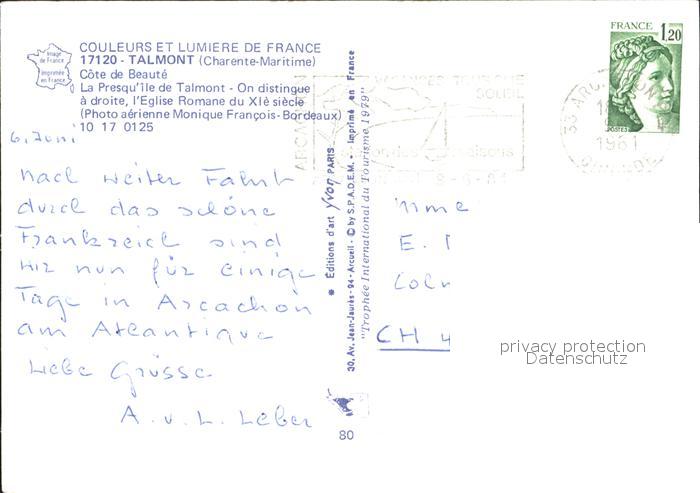 Image
de France
imprimée
en France
COULEURS ET LUMIERE DE FRANCE
17120 - TALMONT (Charente-Maritime)
Côte de Beauté
La Presqu'île de Talmont - On distingue
à droite, l'Eglise Romane du XIè siècle
(Photo aérienne Monique François-Bordeaux)
10 17 0125
6. Juni
nach weiter Fahrt
durch das schöne
Frankreich sind
wir nun für einige
Tage in Arcachon
am Atlantique
Liebe Grüsse
A. v. L. Leber
Editions d'art yvon PARIS
30, Av. Jean-Jaurès - 94 - Arcueil - © by S.P.A.D.E.M. - Imprimé en France
"Trophée International du Tourisme 1979"
80
FRANCE
1,20
POSTES
ARCACHON
VACANCES TOURISME
SOLEIL
saisons
33 ARCACHON
1981
GIRONDE
Mme
E.
CH 4
privacy protection
Datenschutz